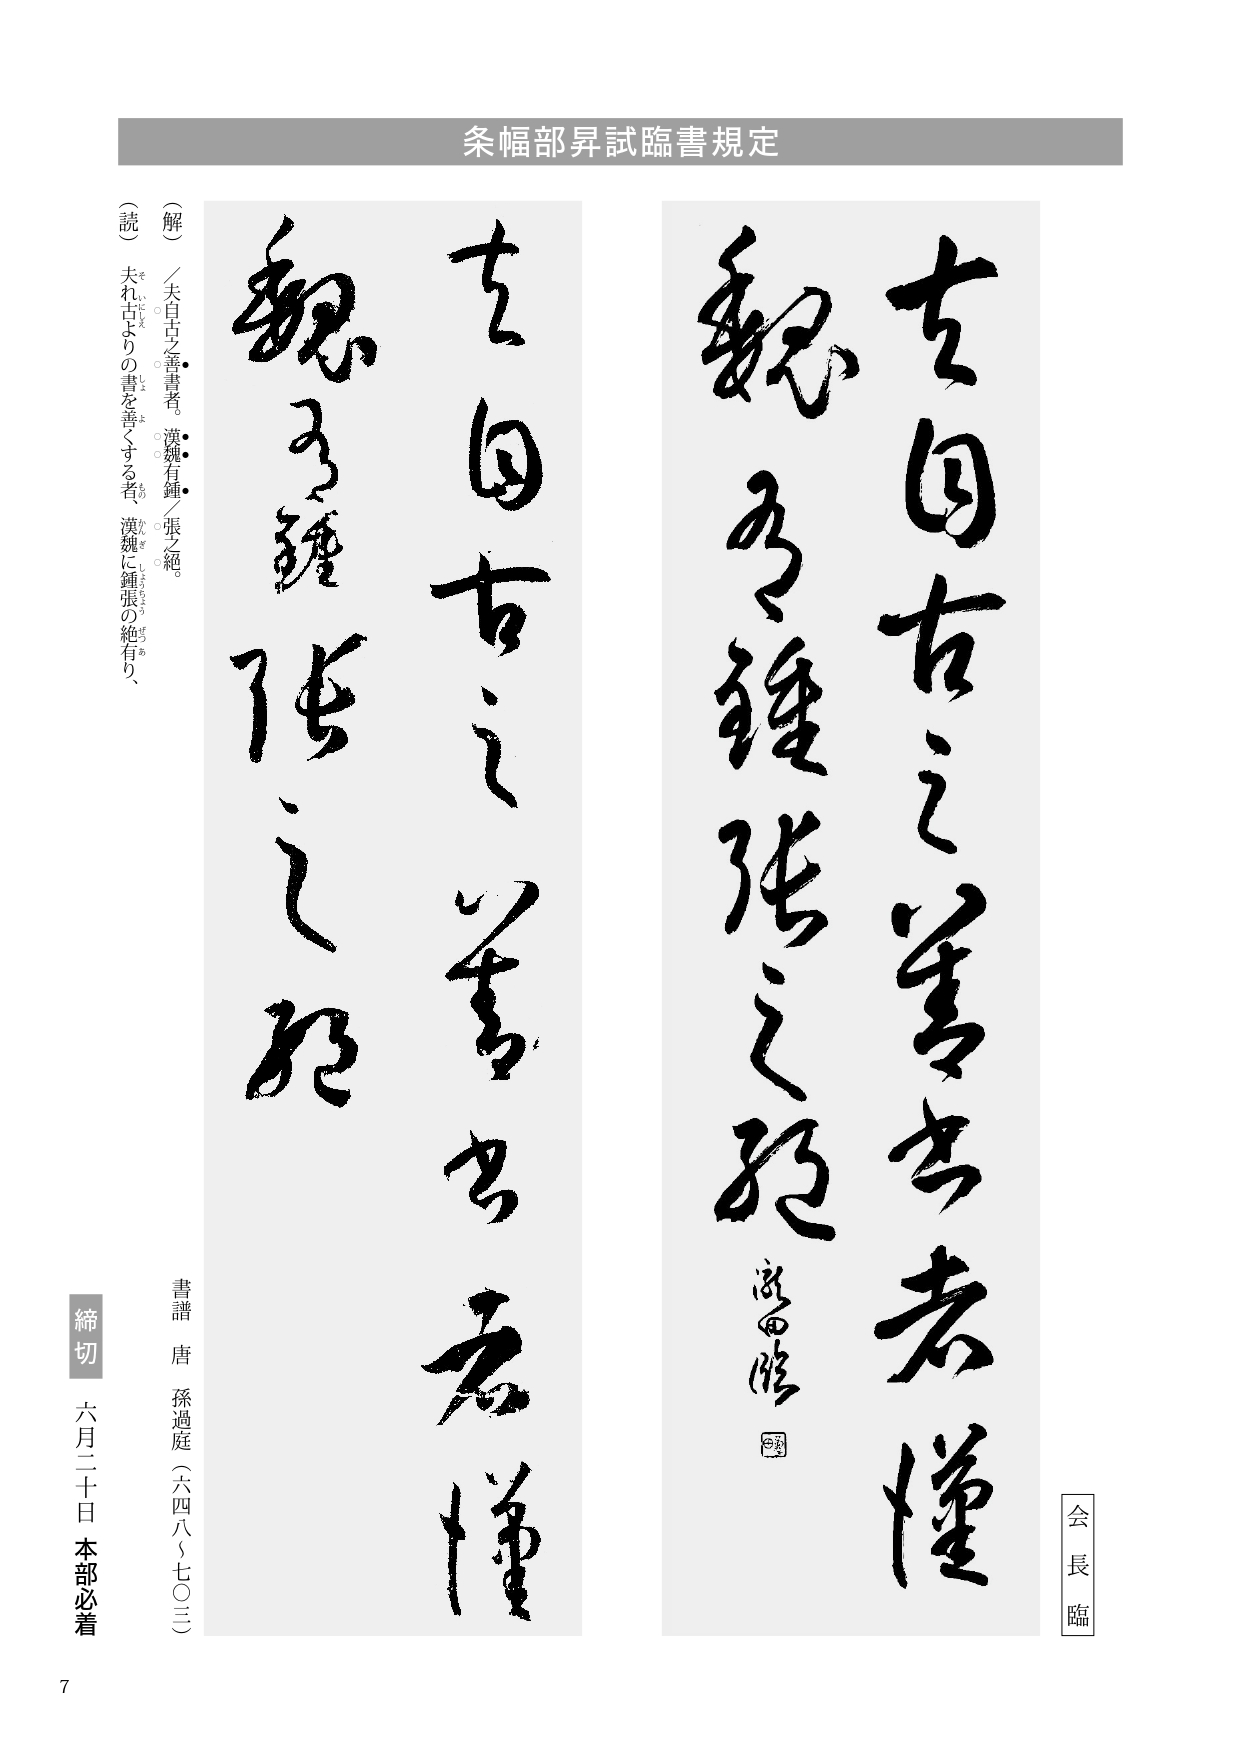 条幅部昇試臨書規定
会長臨
夫自古之善書者漢
魏有鍾張之絶
臨
夫自古之善書者漢
魏有鍾張之絶
（解）　／夫自古之善書者。漢魏有鍾／張之絶。
（読）　夫れ古よりの書を善くする者、漢魏に鍾張の絶有り、
そ いにしえ しょ よ もの かんぎ しょうちょう ぜつあ
書譜　唐　孫過庭（六四八～七〇三）
締切　六月二十日 本部必着
7